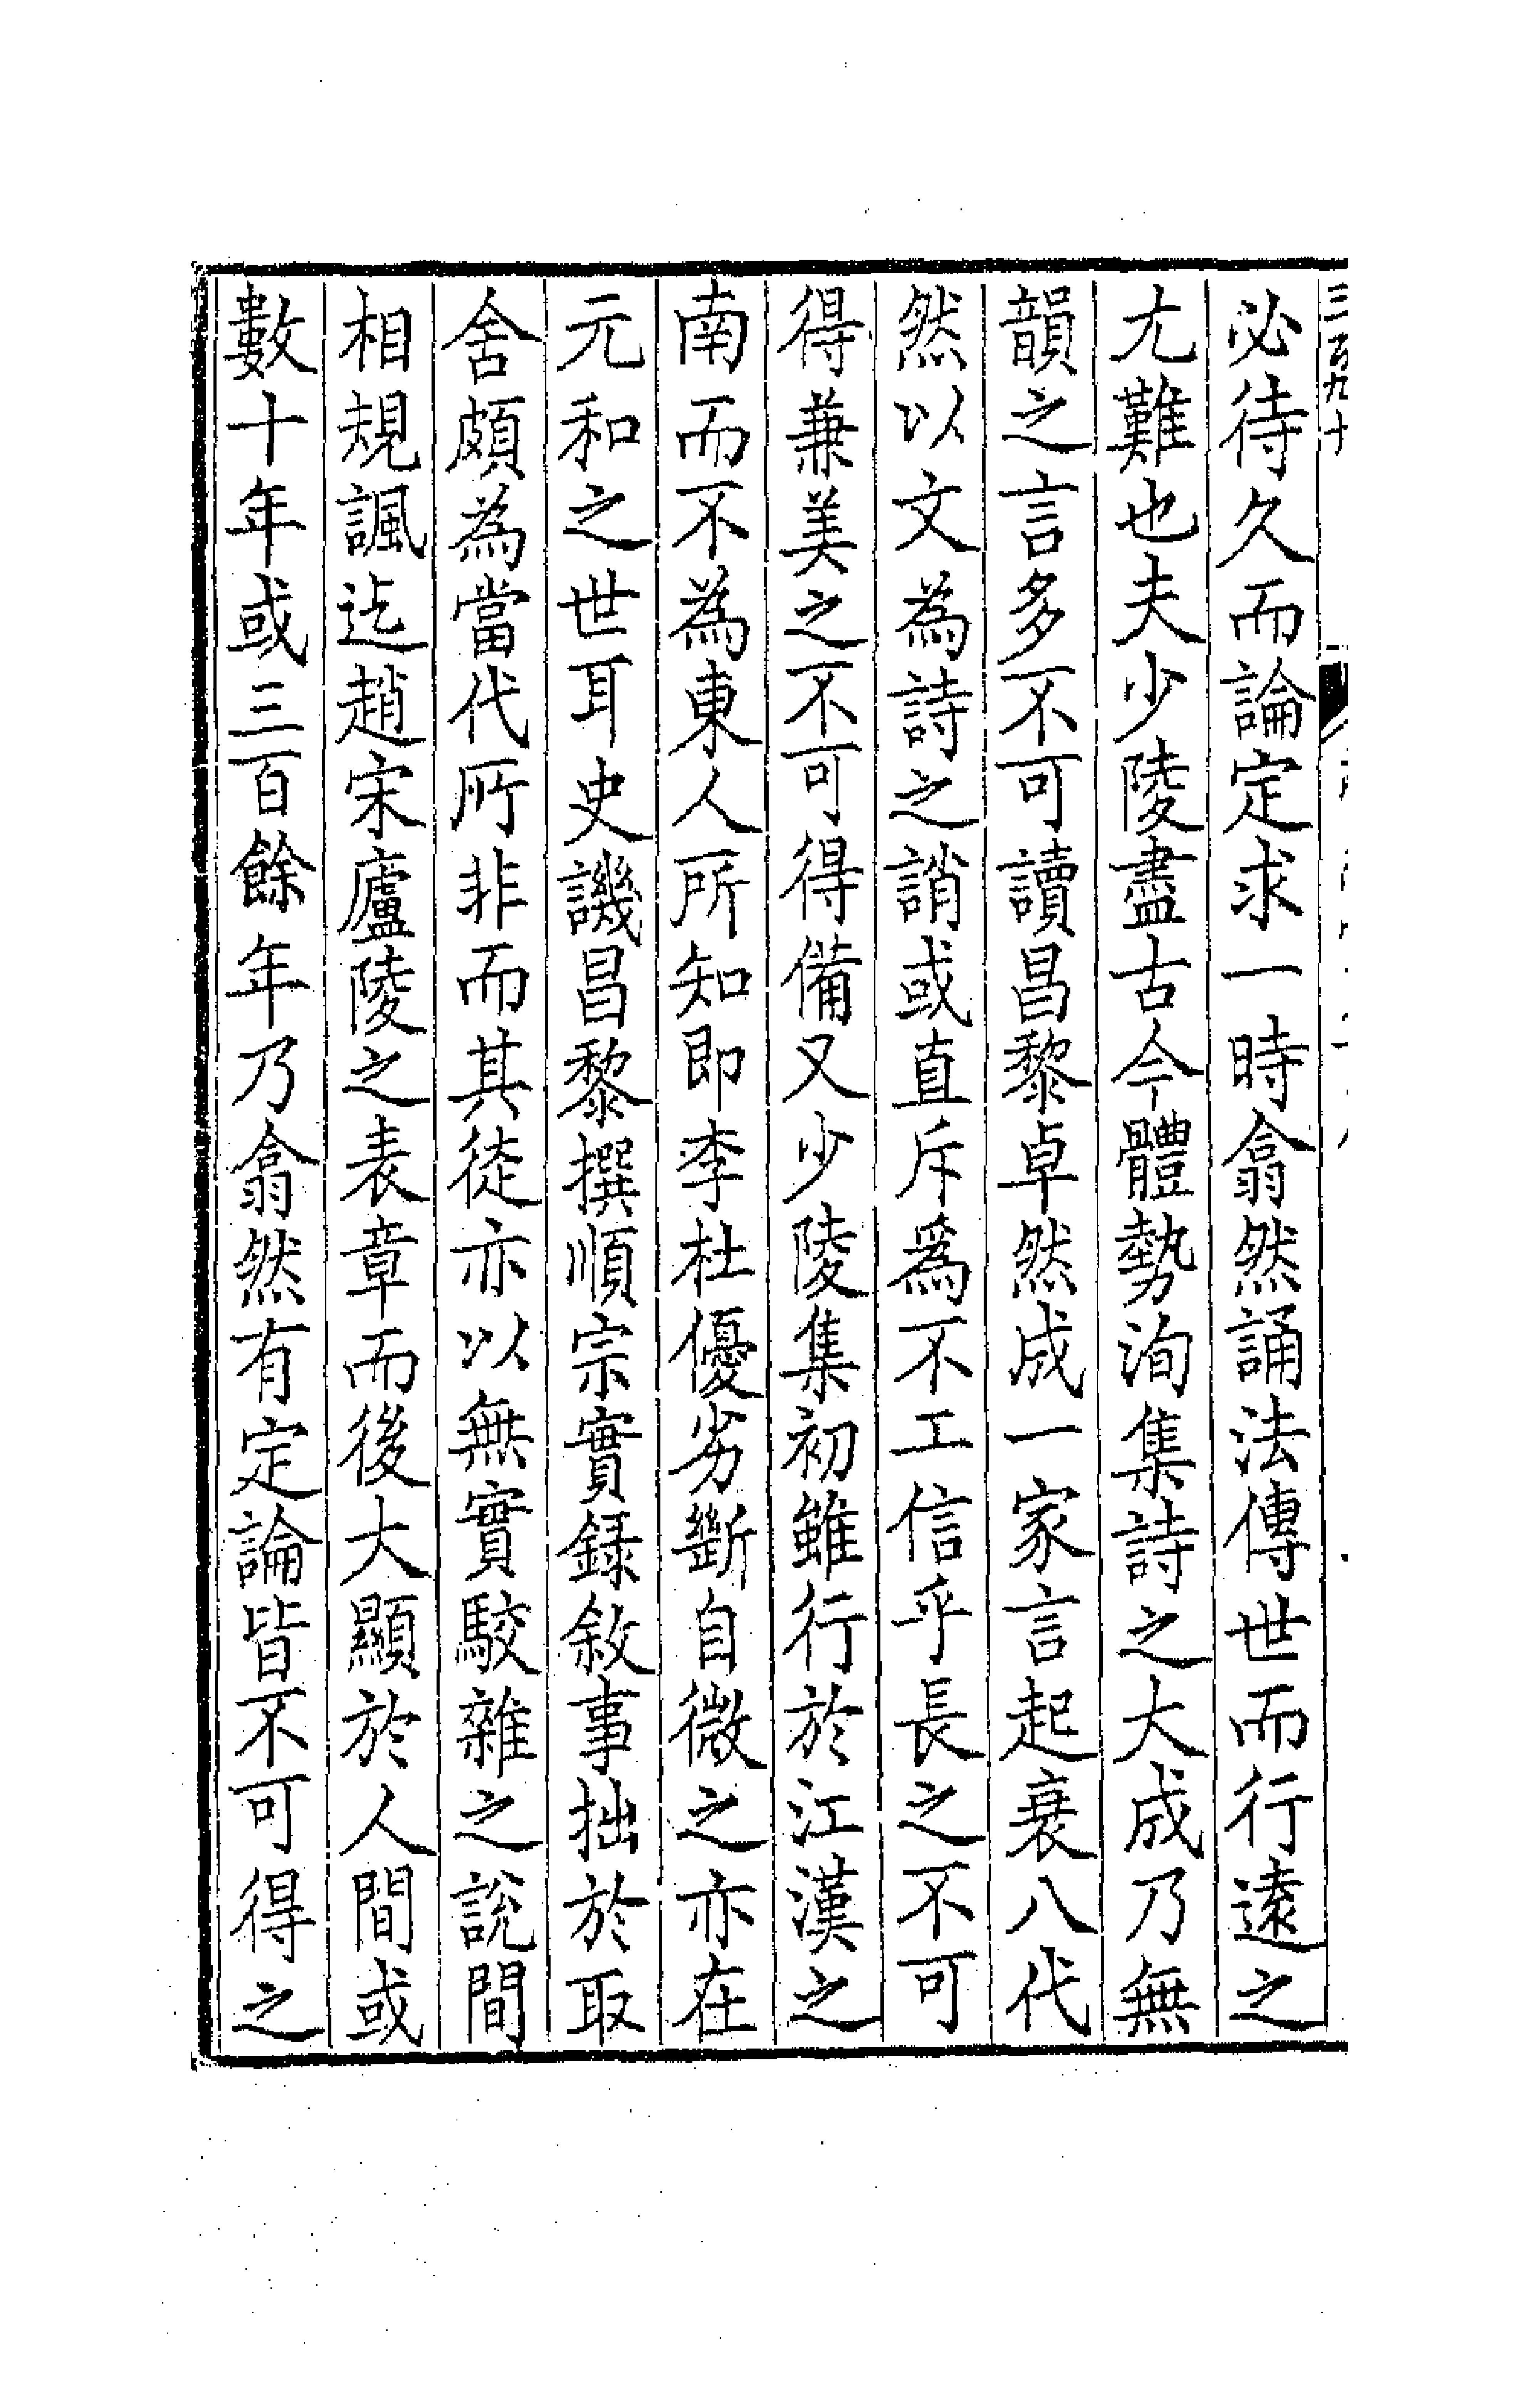 三百九十
必待久而論定求一時翕然誦法傳世而行遠之
尤難也夫少陵盡古今體勢洵集詩之大成乃無
韻之言多不可讀昌黎卓然成一家言起衰八代
然以文為詩之誚或直斥爲不工信乎長之不可
得兼美之不可得備又少陵集初雖行於江漢之
南而不為東人所知即李杜優劣斷自微之亦在
元和之世耳史譏昌黎撰順宗實録敘事拙於取
舍頗為當代所非而其徒亦以無實駮雜之說間
相規諷迄趙宋廬陵之表章而後大顯於人間或
數十年或三百餘年乃翕然有定論皆不可得之